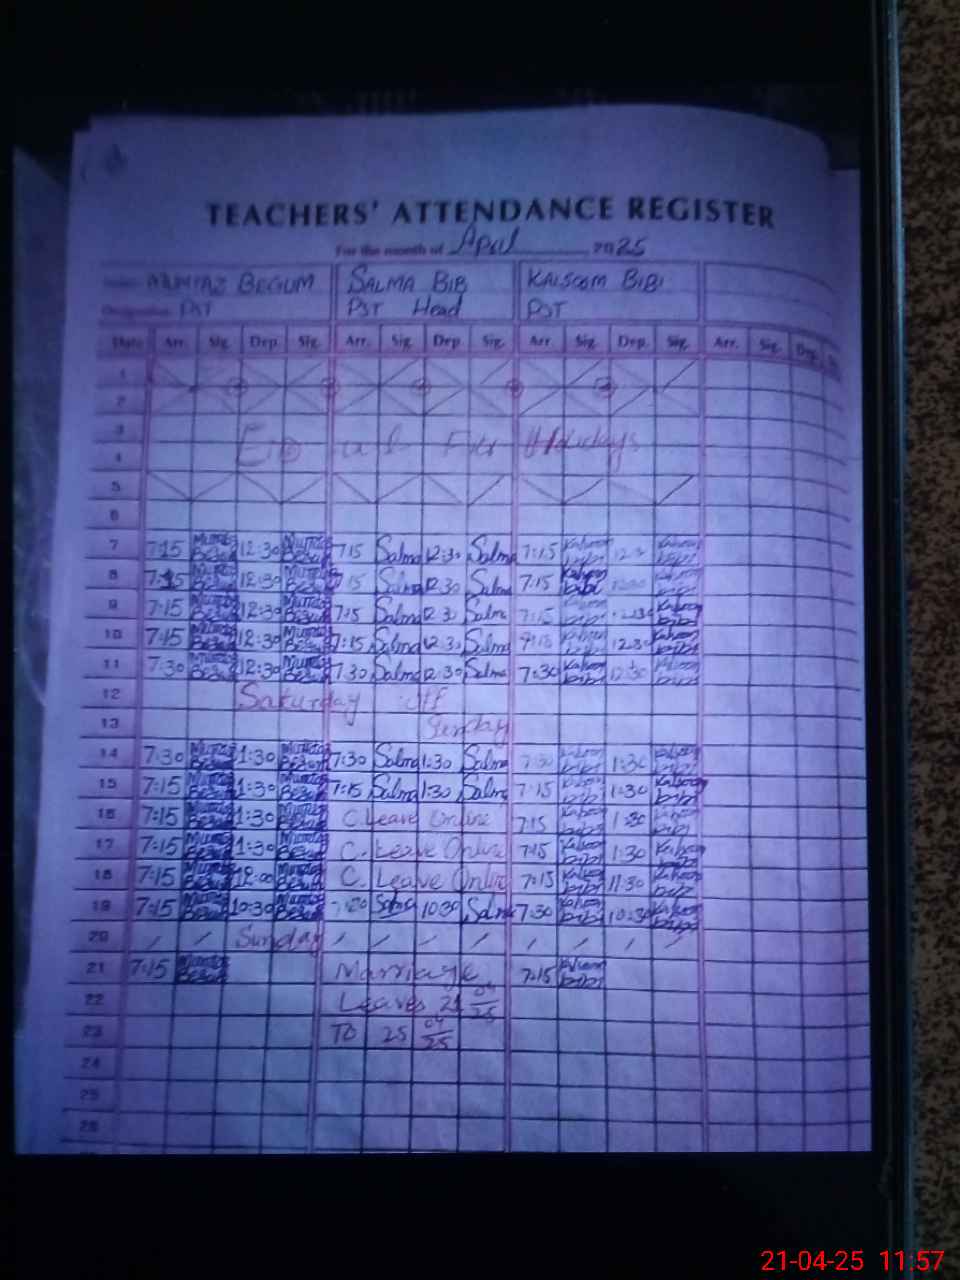 TEACHERS' ATTENDANCE REGISTER
For the month of April 2025
MUMTAZ BEGUM SALMA BIB KALSOOM BIBI
Designation PST PST Head PST
Date Arr. Sig. Dep. Sig. Arr. Sig. Dep. Sig. Arr. Sig. Dep. Sig. Arr. Sig. Dep.
1
2
3
4
Eid ul Fitr Holidays
5
6
7 7:15 Mumtaz Begum 12:30 Mumtaz Begum 7:15 Salma 12:30 Salma 7:15 Kalsoom bibi 12:30 Kalsoom bibi
8 7:15 Mumtaz Begum 12:30 Mumtaz Begum 7:15 Salma 12:30 Salma 7:15 Kalsoom bibi Kalsoom bibi
9 7:15 Mumtaz Begum 12:30 Mumtaz Begum 7:15 Salma 12:30 Salma 7:15 Kalsoom bibi 12:30 Kalsoom bibi
10 7:15 Mumtaz Begum 12:30 Mumtaz Begum 7:15 Salma 12:30 Salma 7:15 Kalsoom bibi 12:30 Kalsoom bibi
11 7:30 Mumtaz Begum 12:30 Mumtaz Begum 7:30 Salma 12:30 Salma 7:30 Kalsoom bibi 12:30 Kalsoom bibi
12 Saturday off
13 Sunday
14 7:30 Mumtaz Begum 1:30 Mumtaz Begum 7:30 Salma 1:30 Salma 7:30 Kalsoom bibi 1:30 Kalsoom bibi
15 7:15 Mumtaz Begum 1:30 Mumtaz Begum 7:15 Salma 1:30 Salma 7:15 Kalsoom bibi 1:30 Kalsoom bibi
16 7:15 Mumtaz Begum 1:30 Mumtaz Begum C. Leave Online 7:15 Kalsoom bibi 1:30 Kalsoom bibi
17 7:15 Mumtaz Begum 1:30 Mumtaz Begum C. Leave Online 7:15 Kalsoom bibi 1:30 Kalsoom bibi
18 7:15 Mumtaz Begum 12:00 Mumtaz Begum C. Leave Online 7:15 Kalsoom bibi 11:30 Kalsoom bibi
19 7:15 Mumtaz Begum 10:30 Mumtaz Begum Salma 10:30 Salma 7:30 Kalsoom bibi 10:30 Kalsoom bibi
20 / / Sunday / / / / / / / /
21 7:15 Mumtaz Begum Marriage 7:15 Kalsoom bibi
22 Leaves 21 04/25
23 TO 25 04/25
24
25
26
21-04-25 11:57